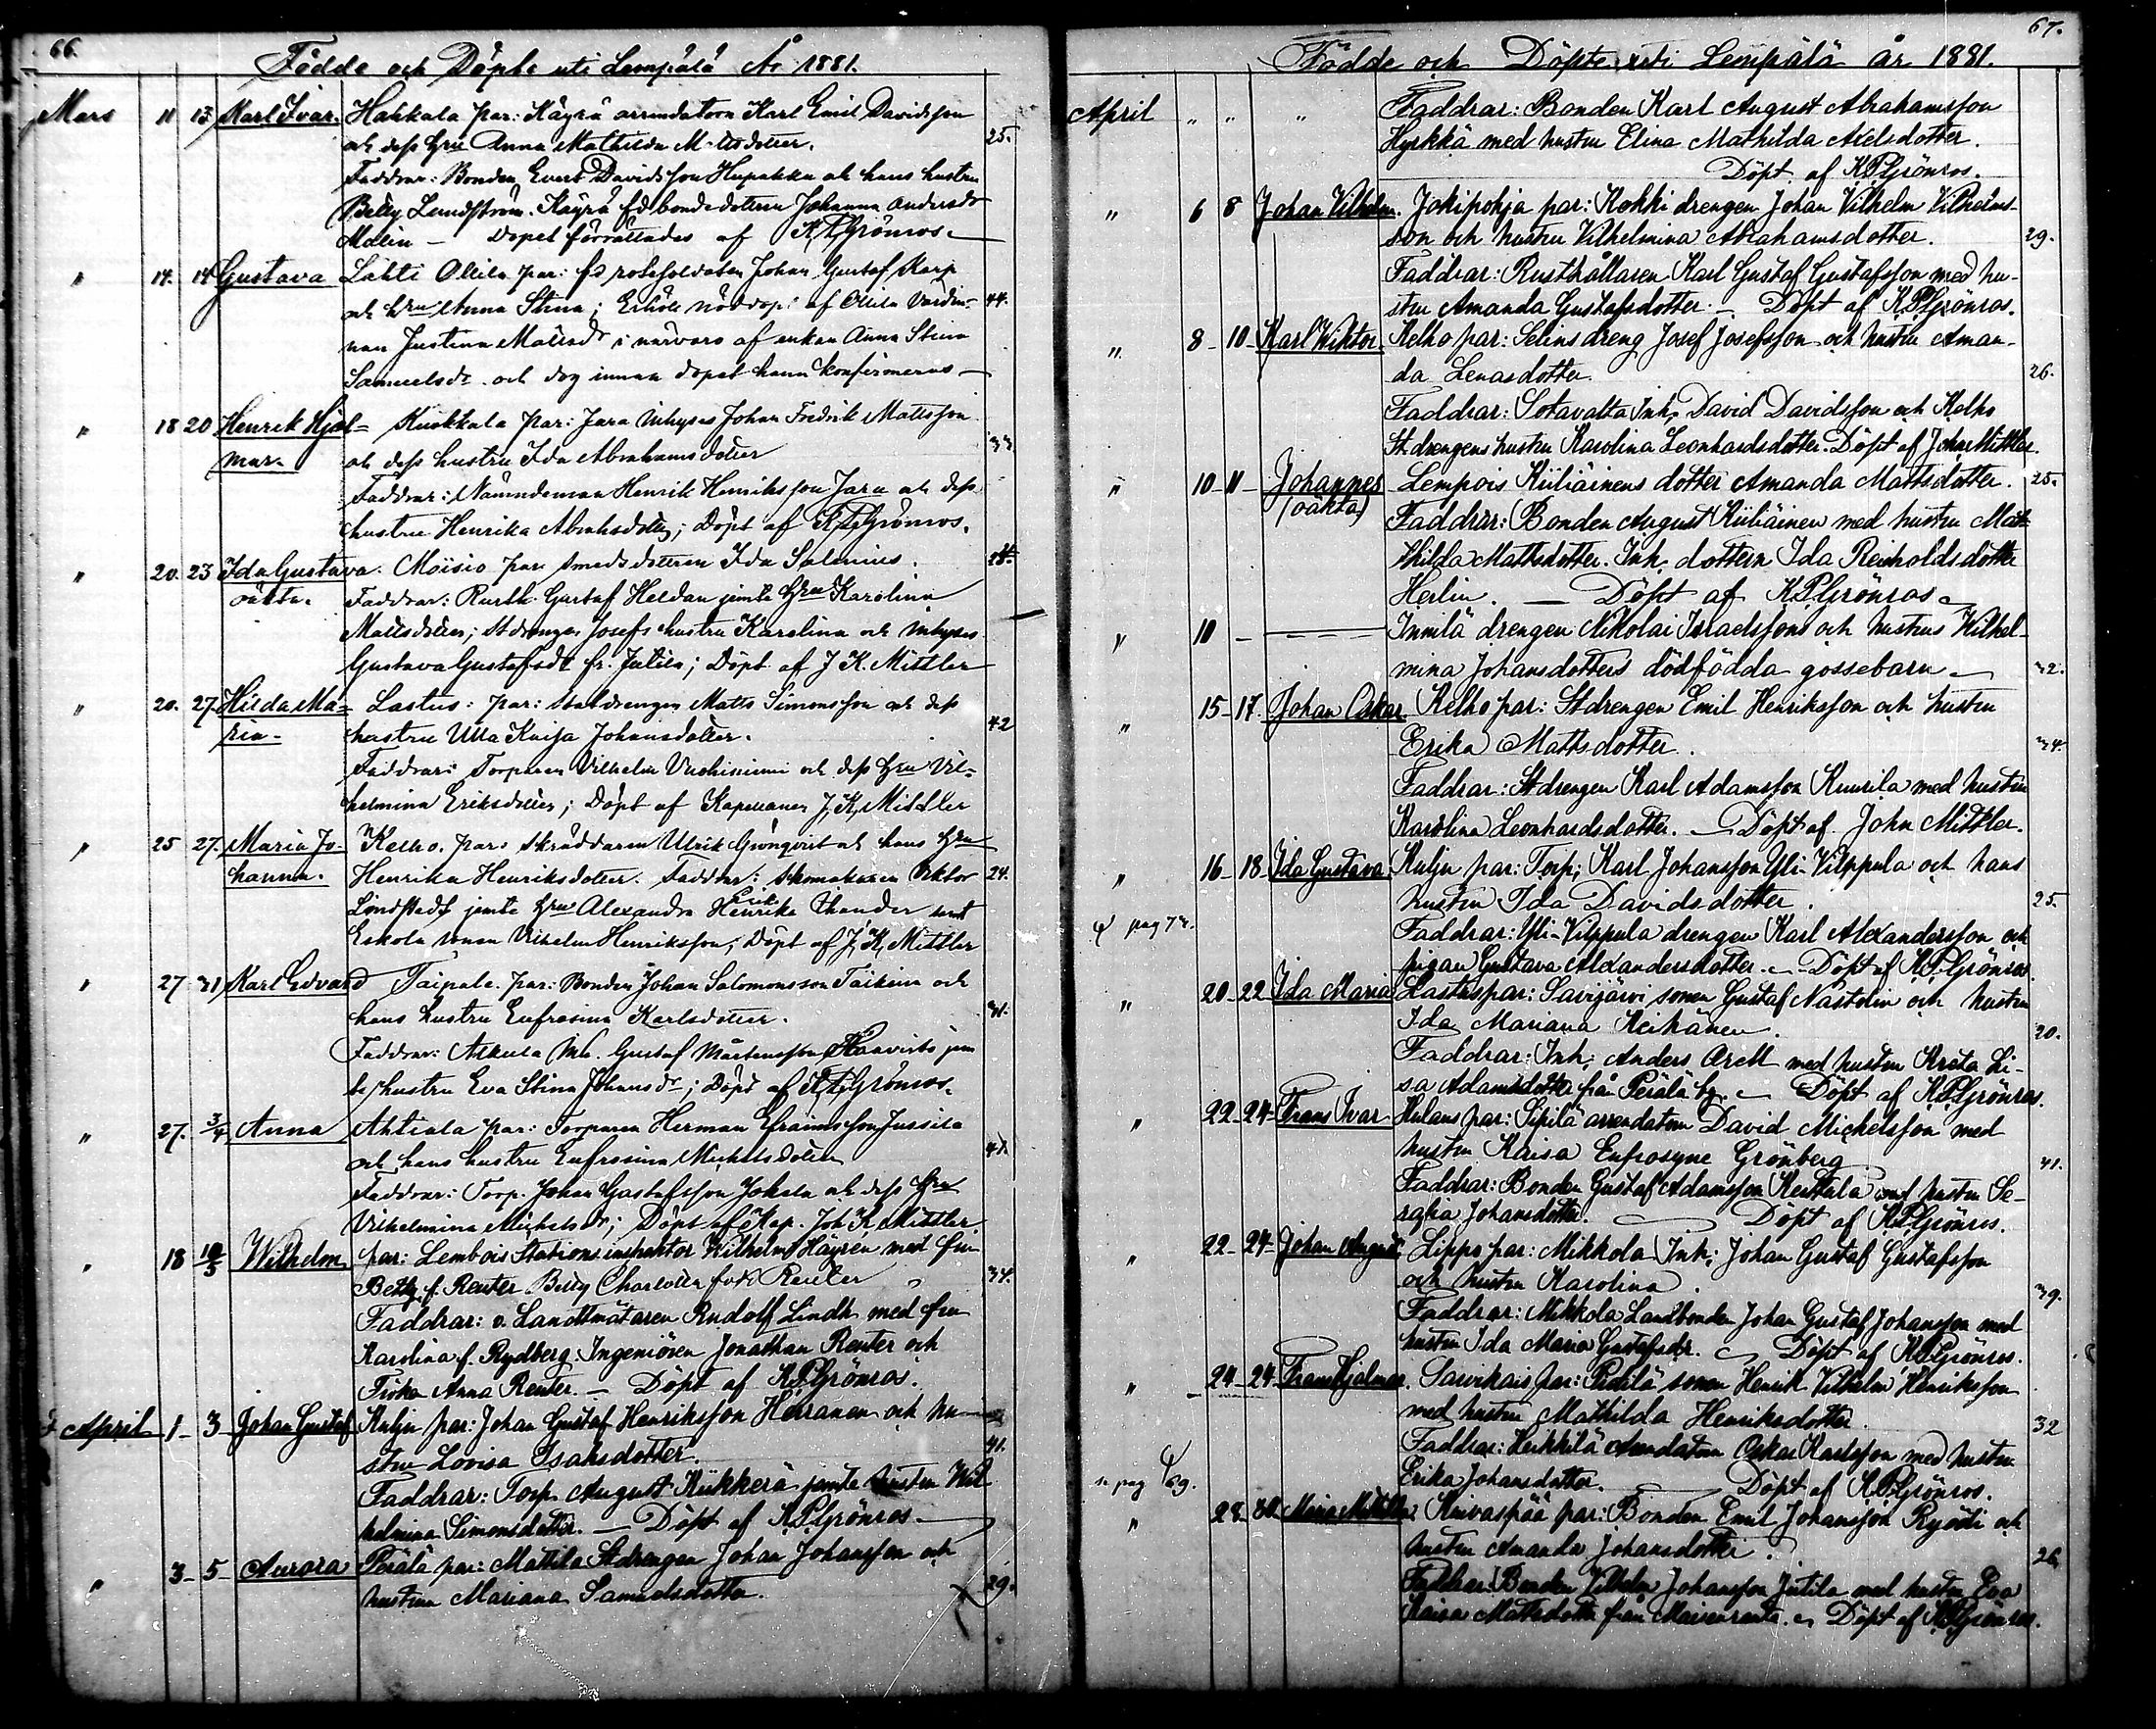 66.
Födde och Döpte uti Lempälä År 1881.
Mars 11 13 Karl Ivar. Hakkala par: Käyrä arrendatorn Karl Emil Davidsson
och dess hru Anna Mathilda M-tsdotter. 25.
Faddrar: Bonden Evert Davidsson Hupakka och hans hustru
Betty Lundström. Käyrä fd bondedottren Johanna Andersdr
Malin — Dopet förrättades af K P Grönros.
" 14. 14 Gustava Lahti Ollila par: fd rotesoldaten Johan Gustaf Karp
och hru Anna Stina; Erhöll nöddop af Ollila Värdin- 44.
nan Justina Mattsdr i närvaro af enkan Anna Stina
Samuelsdr och dog innan dopet hann konfirmeras —
" 18 20 Henrik Hjal- Kuokkala par: Jara Inhyses Johan Fredrik Mattsson
mar. och dess hustru Ida Abrahamsdotter 33
Faddrar: Nämndeman Henrik Henriksson Jara och dess
hustru Henrika Abrahsdotter; Döpt af K P Grönros.
" 20. 23 Ida Gustava. Moisio par: smedsdottren Ida Salenius.
oäkta. Faddrar: Rusth. Gustaf Heldan jemte hru Karolina
Mattsdotter; Stdrengs Josefs hustru Karolina och Inhyses
Gustava Gustafsdr fr. Jutila; Döpt af J K. Mittler
" 20. 27. Hilda Ma- Lastus: par: Staldrengen Matts Simonsson och dess
ria. hustru Ulla Kaisa Johansdotter. 42
Faddrar: Torparen Vilhelm Vuohiniemi och dess hru Vil-
helmina Eriksdotter; Döpt af Kapellanen J, K, Mittler
" 25 27. Maria Jo- Kelho. par: Skräddaren Ulrik Grönqvist och hans hru
hanna. Henrika Henriksdotter. Faddrar: Skomakaren Viktor 24.
Lindstedt jemte hru Alexandra Henrika Thander samt
Eskola sonen Vilhelm Henriksson; Döpt af J, K, Mittler
" 27 31 Karl Edvard Taipale. par: Bonden Johan Salomonsson Taikina och
hans hustru Eufrosina Karlsdotter. 31.
Faddrar: Alkula Inh. Gustaf Mårtensson Haavisto jem
te hustru Eva Stina Johansdr; Döpt af K, P, Grönros.
" 27. 3/4 Anna Ahtiala par: Torparen Herman Efraimsson Jussila
och hans hustru Eufrosina Michelsdotter 41.
Faddrar: Torp. Johan Gustafsson Jokela och dess hru
Vilhelmina Michelsdr; Döpt af Kap. Joh K Mittler.
" 18 Wilhelm par: Lembois Stationsinspektor Wilhelm Häyrén med fru
Betty f. Reuter Betty Charlotta född Reuter 34.
Faddrar: v. Landtmätaren Rudolf Lindh med fru
Karolina f. Rydberg Ingeniören Jonathan Reuter och
Fröken Anna Reuter. — Döpt af K P Grönros.
April 1 — 3 Johan Gustaf Kulju par: Johan Gustaf Henriksson Herranen och hu-
stru Lovisa Isaksdotter. 41.
Faddrar: Torp. August Kukkerä jemte hustru Wil-
helmina Simonsdotter. — Döpt af K P Grönros —
" 3 — 5 — Aurora Perälä par: Mattila Stdrengen Johan Johansson och
hustrun Mariana Samuelsdotter. 29.
67.
Födde och Döpte uti Lempälä år 1881.
April " " " Faddrar: Bonden Karl August Abrahamsson
Hyrkkä med hustru Elina Mathilda Axelsdotter.
Döpt af K P Grönros.
" 6 8 Johan Vilhelm. Jokipohja par: Kokki drengen Johan Vilhelm Vilhelms-
son och hustru Vilhelmina Abrahamsdotter. 29.
Faddrar: Rusthållaren Karl Gustaf Gustafsson med hu-
stru Amanda Gustafsdotter. — Döpt af K P Grönros.
" 8 — 10 — Karl Viktor Kelho par: Selins dreng Josef Josefsson och hustru Aman-
da Lenasdotter. 26.
Faddrar: Sotavalta Inh. David Davidsson och Kelho
Stdrengens hustru Karolina Leonhardsdotter. Döpt af John Mittler.
" 10 — 11 — Johannes Lempois Kuliäinens dotter Amanda Mattsdotter. 25.
(oäkta) Faddrar: Bonden August Kuliäinen med hustru Mat-
thilda Mattsdotter. Inh. dottern Ida Reinholdsdotter
Herlin. — Döpt af K P Grönros
" 10 — — Innilä drengen Nikolai Israelssons och hustrus Wilhel-
mina Johansdotters dödfödda gossebarn — 32.
" 15 — 17. Johan Oskar Kelho par: Stdrengen Emil Henriksson och hustru
Erika Mattsdotter. 34.
Faddrar: Stdrengen Karl Adamsson Kuurila med hustru
Karolina Leonhardsdotter. — Döpt af John Mittler.
" 16 — 18 — Ida Gustava Kulju par: Torp. Karl Johansson Yli-Vilppula och hans
hustru Ida Davidsdotter. 25.
pag 72. Faddrar: Yli-Vilppula drengen Karl Alexandersson och
pigan Gustava Alexandersdotter. — Döpt af K P Grönros.
" 20 — 22 — Ida Maria Lastus par: Savijärvi sonen Gustaf Nästolin och hustru
Ida Mariana Keihänen. 20.
Faddrar: Inh. Anders Orell med hustru Kreta Li-
sa Adamsdotter från Perälä by. — Döpt af K P Grönros.
" 22 — 24 — Frans Ivar Kulans par: Sipilä arrendatorn David Michelsson med
hustru Kaisa Eufrosyne Grönberg 41.
Faddrar: Bonden Gustaf Adamsson Kurttala med hustru Se-
rafia Johansdotter. — Döpt af K P Grönros.
" 22 — 24 — Johan August Lippo par: Mikkola Inh: Johan Gustaf Gustafsson
och hustru Karolina. 39.
Faddrar: Mikkola Landbonden Johan Gustaf Johansson med
hustru Ida Maria Gustafsdr. — Döpt af K P Grönros.
" 24 — 24 Frans Hjalmar. Sarvikais par: Penttilä sonen Henrik Vilhelm Henriksson
med hustru Mathilda Henriksdotter. 32
Faddrar: Heikkilä Arrendatorn Oskar Karlsson med hustru
pag 69. Erika Johansdotter. — Döpt af K P Grönros.
" 28 — 30 Maria Mathilda. Kuivaspää par: Bonden Emil Johansson Ryödi och
hustru Amanda Johansdotter. 26
Faddrar: Bonden Vilhelm Johansson Jutila med hustru Eva
Kaisa Mattsdotter från Maisenranta. — Döpt af K P Grönros.